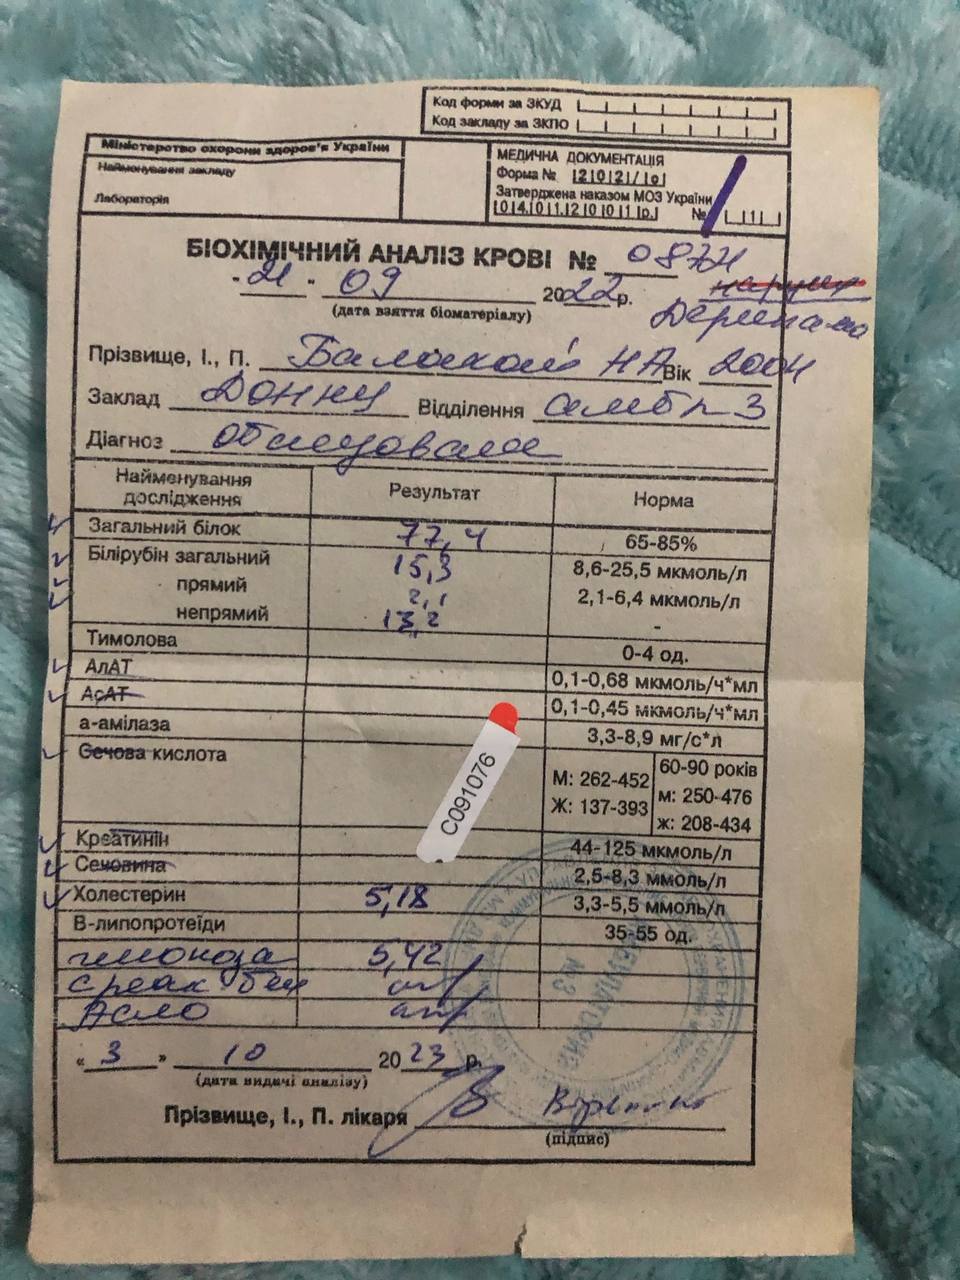 Код форми за ЗКУД
Код закладу за ЗКПО
Міністерство охорони здоров'я України
Найменування закладу
Лабораторія
МЕДИЧНА ДОКУМЕНТАЦІЯ
Форма № 2 0 2 / о
Затверджена наказом МОЗ України
0 4 0 1 2 0 0 1 р. № 1
БІОХІМІЧНИЙ АНАЛІЗ КРОВІ № 0874
21 09 2022 р.
(дата взяття біоматеріалу)
Прізвище, І., П. НА Вік 2004
Заклад Донну Відділення 3
Діагноз
Найменування дослідження Результат Норма
Загальний білок 77,4 65-85%
Білірубін загальний 15,3 8,6-25,5 мкмоль/л
прямий 2,1 2,1-6,4 мкмоль/л
непрямий 13,2 -
Тимолова 0-4 од.
АлАТ 0,1-0,68 мкмоль/ч*мл
АсАТ 0,1-0,45 мкмоль/ч*мл
а-амілаза 3,3-8,9 мг/с*л
Сечова кислота
М: 262-452
Ж: 137-393
60-90 років
м: 250-476
ж: 208-434
C091076
Креатинін 44-125 мкмоль/л
Сечовина 2,5-8,3 ммоль/л
Холестерин 5,18 3,3-5,5 ммоль/л
В-липопротеїди 35-55 од.
глюкоза 5,42
среак бел
Асло
« 3 » 10 2023 р.
(дата видачі аналізу)
Прізвище, І., П. лікаря
(підпис)